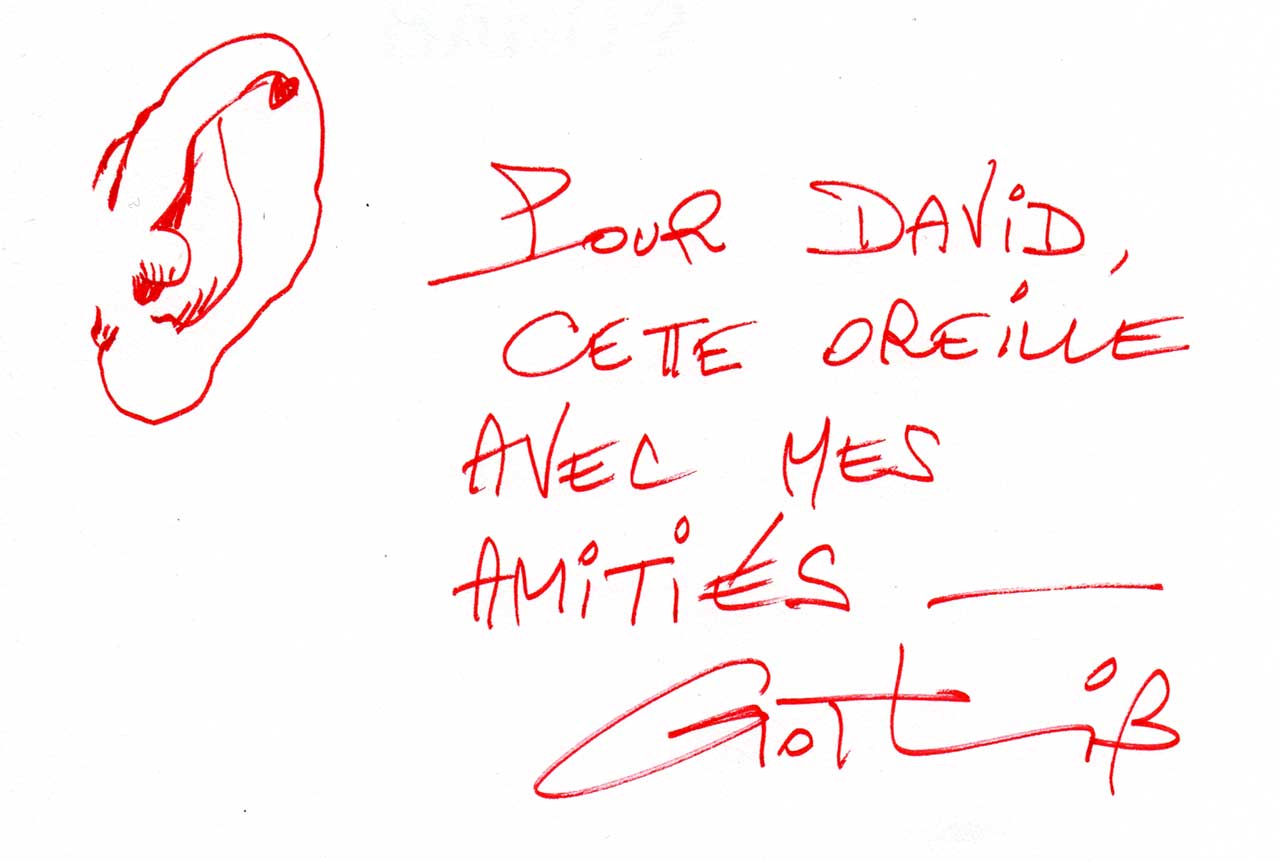 POUR DAVID,
CETTE OREILLE
AVEC MES
AMITIÉS —
GOTLIB